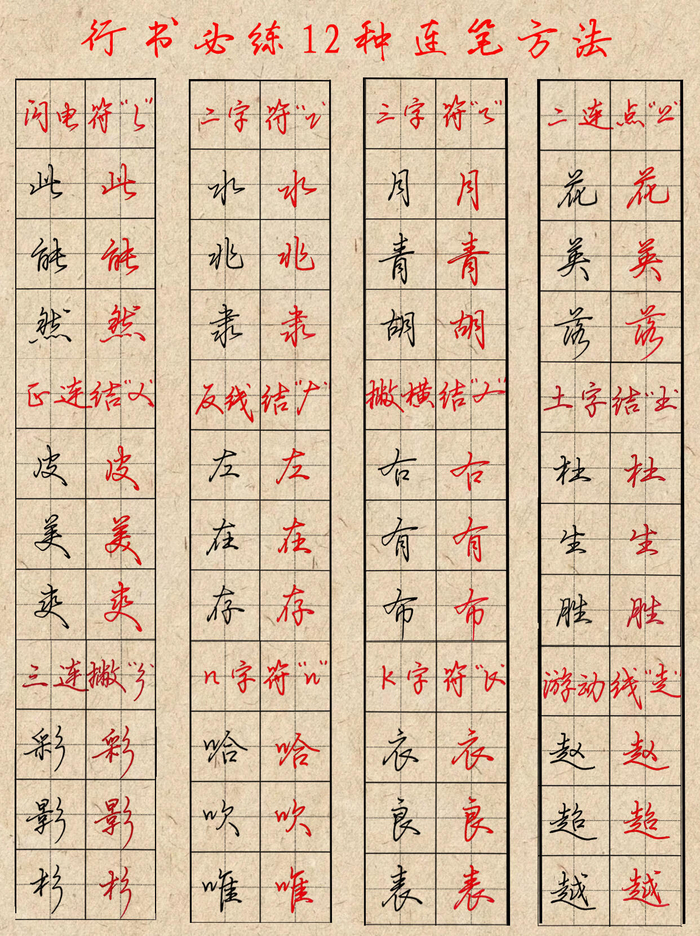 行书必练12种连笔方法
闪电符"ʅ"
此 此
能 能
然 然
正连结"㇇"
皮 皮
美 美
爽 爽
三连撇"彡"
彩 彩
影 影
杉 杉
二字符"二"
水 水
兆 兆
隶 隶
反线结"ナ"
左 左
在 在
存 存
n字符"n"
哈 哈
吹 吹
唯 唯
三字符"三"
月 月
青 青
胡 胡
撇横结"ナ"
右 右
有 有
布 布
k字符"k"
衣 衣
良 良
表 表
二连点"丷"
花 花
英 英
落 落
土字结"土"
杜 杜
生 生
胜 胜
游动线"走"
赵 赵
超 超
越 越